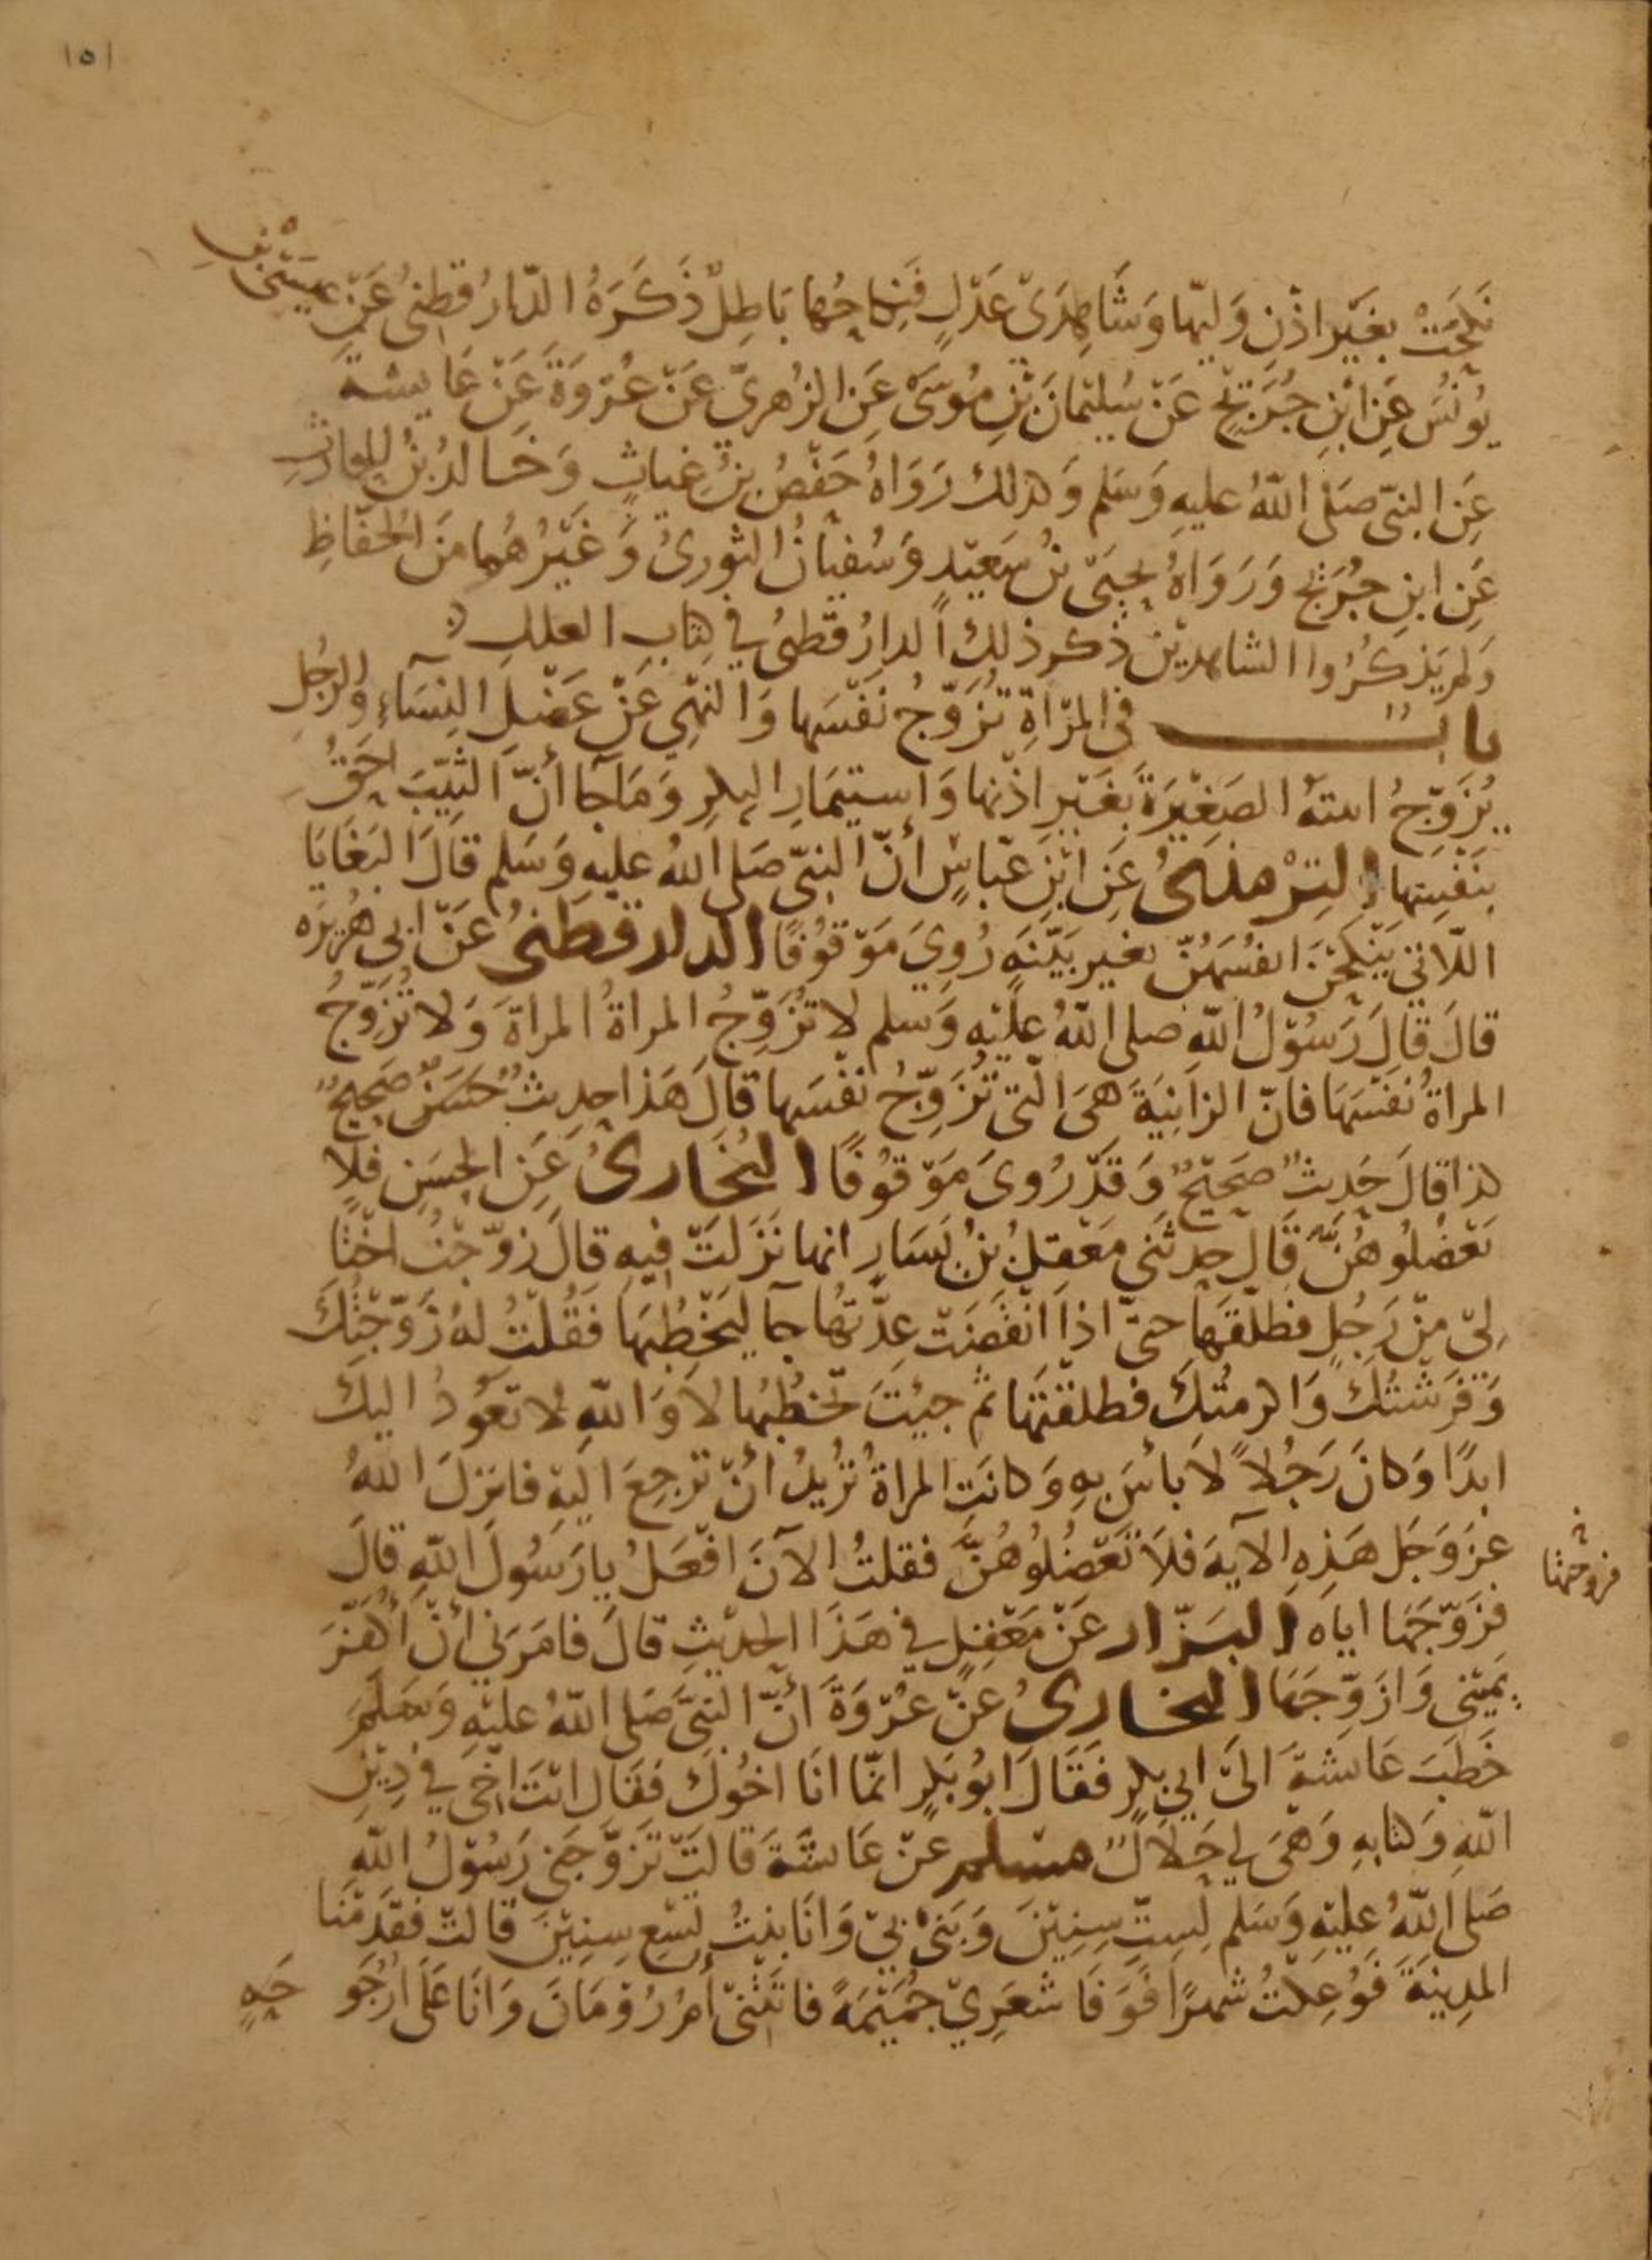 ١٥١
نَكَحَتْ بغَيْر اذْنِ وَليّها وَشَاهِدَىْ عَدْلٍ فَنِكَاحُها بَاطِلٌ ذَكَرَهُ الدّارُقطنىُ عَنْ عيسَى بْنِ
يُونُسَ عَنِ ابْنِ جُرَيْجٍ عَنْ سُليْمانَ بْنِ مُوسَى عَنِ الزُهرىّ عَنْ عُرْوَةَ عَنْ عَايشة
عَنِ النبىّ صَلى اللّهُ عليهِ وَسَلم وَكذلك رَوَاهُ حَفْصُ بنُ غياثٍ وَخَالدُ بْنُ الحارثِ
عَنِ ابنِ جُرَيْج وَرَوَاهُ يحيَى بْنُ سَعيْدٍ وَسُفيانُ الثورىُ وَغَيْرُهُما منَ الحُفّاظِ
وَلم يَذكُرُوا الشاهديْن ذكر ذلك الدارُقطنىُ في كتابِ العللِ
بابٌ فى المرْاةِ تُزَوّجُ نَفْسَها وَالنهْي عَنْ عَضْلِ النِسَاءِ وَالرجُلِ
يُزَوّجُ ابنتهُ الصَغِيْرَةَ بغَيْرِ اذْنها وَاستيمَارِ البكرِ وَمَا جَا أنّ الثيّبَ احَقُّ
بنَفْسِها التِرْمذىُّ عَنِ ابْنِ عَبّاسٍ أنّ النبىّ صَلى اللهُ عليهِ وَسَلم قالَ البَغَايَا
اللّاتى يَنْكِحْنَ انفُسَهُنّ بغيرِ بَيّنَةٍ رُوِيَ مَوْقُوفًا الدارقطنىُ عَنْ ابى هُرَيرَه
قالَ قالَ رَسُوْلُ اللّهِ صلى اللّهُ علَيْهِ وَسَلم لا تُزَوِّجُ المراةُ المراةَ وَلا تُزَوِّجُ
المراةُ نفْسَهَا فانّ الزانِيَةَ هىَ الّتى تُزَوِّجُ نفْسَها قالَ هَذا حدِيثٌ حَسَنٌ صَحِيحٌ
كذا قالَ حَدِيثٌ صَحِيْحٌ وَقدْ رُوىَ مَوْقُوفًا البُخَارىُّ عَنِ الحسَنِ فلا
تَعْضُلُوهُنَّ قَالَ حدثنى مَعْقلُ بْنُ يَسَارٍ انها نَزَلَتْ فيهِ قالَ زوّجْتُ اخْتًا
لِىْ مِنْ رَجُلٍ فطلّقَها حتىّ اذا انقَضَتْ عِدّتُها جآ يَخْطُبُهَا فَقُلْتُ لَهُ زَوّجْتُكَ
وَفَرَشْتُكَ وَاكرمتُكَ فطلقْتَهَا ثُم جيْتَ تخطُبُها لاَ وَاللّهِ لا تعُودُ اليكَ
ابدًا وَكانَ رَجُلاً لاَ باسَ بهِ وَكانَتِ المراةُ تُريْدُ أنْ ترْجِعَ اليْهِ فانزلَ اللّهُ
عَزَ وَجَل هَذِهِ الآيةَ فلاَ تَعْضُلُوهُنَّ فقلتُ الآنَ افْعَلُ يا رَسُولَ اللّهِ قالَ
فزوّجتها
فزَوّجَهَا اياه البَزّار عَنْ مَعْقِلٍ في هَذَا الحديْثِ قالَ فامَرَنى أنْ أُكَفّرَ
يَمِيْنى وَازَوّجَهَا البخارىُّ عَنْ عُرْوَةَ أنّ النبىَّ صَلى اللّهُ عليْهِ وَسَلّمَ
خَطَبَ عَائشةَ الىَ ابى بكرٍ فَقَالَ ابُو بَكرٍ انّما انَا اخُوكَ فقَال انتَ اخِى في دِيْنِ
اللّهِ وَكتابِهِ وَهْىَ لى حَلاَلٌ مسلم عنْ عَائشةَ قالَتْ تَزَوَّجَنى رَسُوْلُ اللّهِ
صَلى اللّهُ عليْهِ وَسَلم لِستِّ سِنِيْنَ وَبَنَىْ بىْ وَانَا بنتُ تِسْعِ سِنِيْنَ قالتْ فقَدِمْنا
المدِينةَ فوُعِكْتُ شهرًا فَوَفَا شعَرِيْ جُمَيْمَةً فاتَتْنىْ أمُّ رُوْمَانَ وَانَا عَلَى ارْجُو حَةٍ